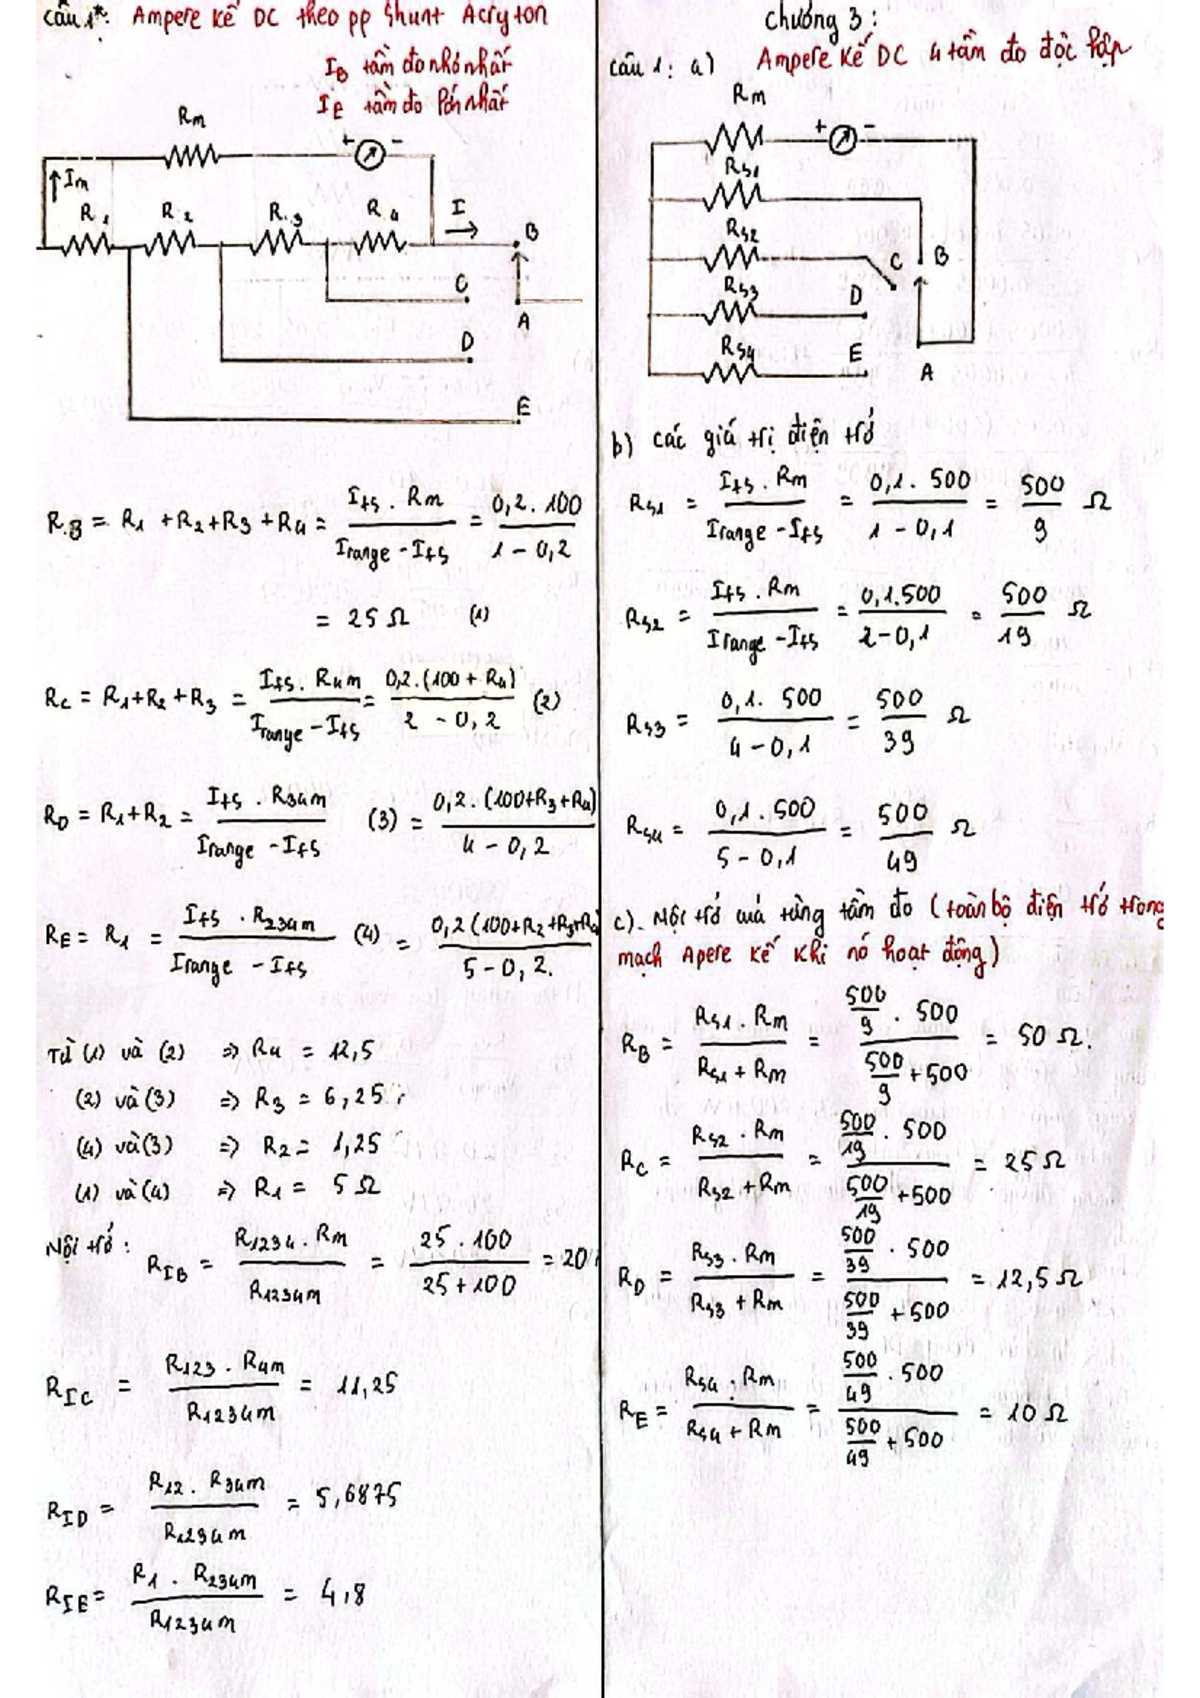 Câu 1*: Ampere kế DC theo pp Shunt Acryton
IB tầm đo nhỏ nhất
IE tầm đo lớn nhất
Rm
+ -
Im
R1 R2 R3 R4 I
B
C
A
D
E
R.B = R1 + R2 + R3 + R4 = Ifs . Rm / Irange - Ifs = 0,2 . 100 / 1 - 0,2
= 25 Ω (1)
Rc = R1 + R2 + R3 = Ifs . R4m / Irange - Ifs = 0,2.(100 + R4) / 2 - 0,2 (2)
RD = R1 + R2 = Ifs . R34m / Irange - Ifs (3) = 0,2.(100+R3+R4) / 4 - 0,2
RE = R1 = Ifs . R234m / Irange - Ifs (4) = 0,2(100+R2+R3+R4 / 5 - 0,2.
Từ (1) và (2) => R4 = 12,5
(2) và (3) => R3 = 6,25
(4) và (3) => R2 = 1,25
(1) và (4) => R1 = 5 Ω
Nội trở: RIB = R1234 . Rm / R1234m = 25 . 100 / 25 + 100 = 20
RIC = R123 . R4m / R1234m = 11,25
RID = R12 . R34m / R1234m = 5,6875
RIE = R1 . R234m / R1234m = 4,8
Chương 3:
Câu 1: a) Ampere kế DC 4 tầm đo độc lập
Rm
+ -
Rs1
Rs2
C B
Rs3
D
Rs4
E
A
b) các giá trị điện trở
Rs1 = Ifs . Rm / Irange - Ifs = 0,1 . 500 / 1 - 0,1 = 500 / 9 Ω
Rs2 = Ifs . Rm / Irange - Ifs = 0,1.500 / 2 - 0,1 = 500 / 19 Ω
Rs3 = 0,1 . 500 / 4 - 0,1 = 500 / 39 Ω
Rs4 = 0,1 . 500 / 5 - 0,1 = 500 / 49 Ω
c). Nội trở của từng tầm đo (toàn bộ điện trở trong
mạch Apere kế khi nó hoạt động)
RB = Rs1 . Rm / Rs1 + Rm = 500/9 . 500 / 500/9 + 500 = 50 Ω.
RC = Rs2 . Rm / Rs2 + Rm = 500/19 . 500 / 500/19 + 500 = 25 Ω
RD = Rs3 . Rm / Rs3 + Rm = 500/39 . 500 / 500/39 + 500 = 12,5 Ω
RE = Rs4 . Rm / Rs4 + Rm = 500/49 . 500 / 500/49 + 500 = 10 Ω